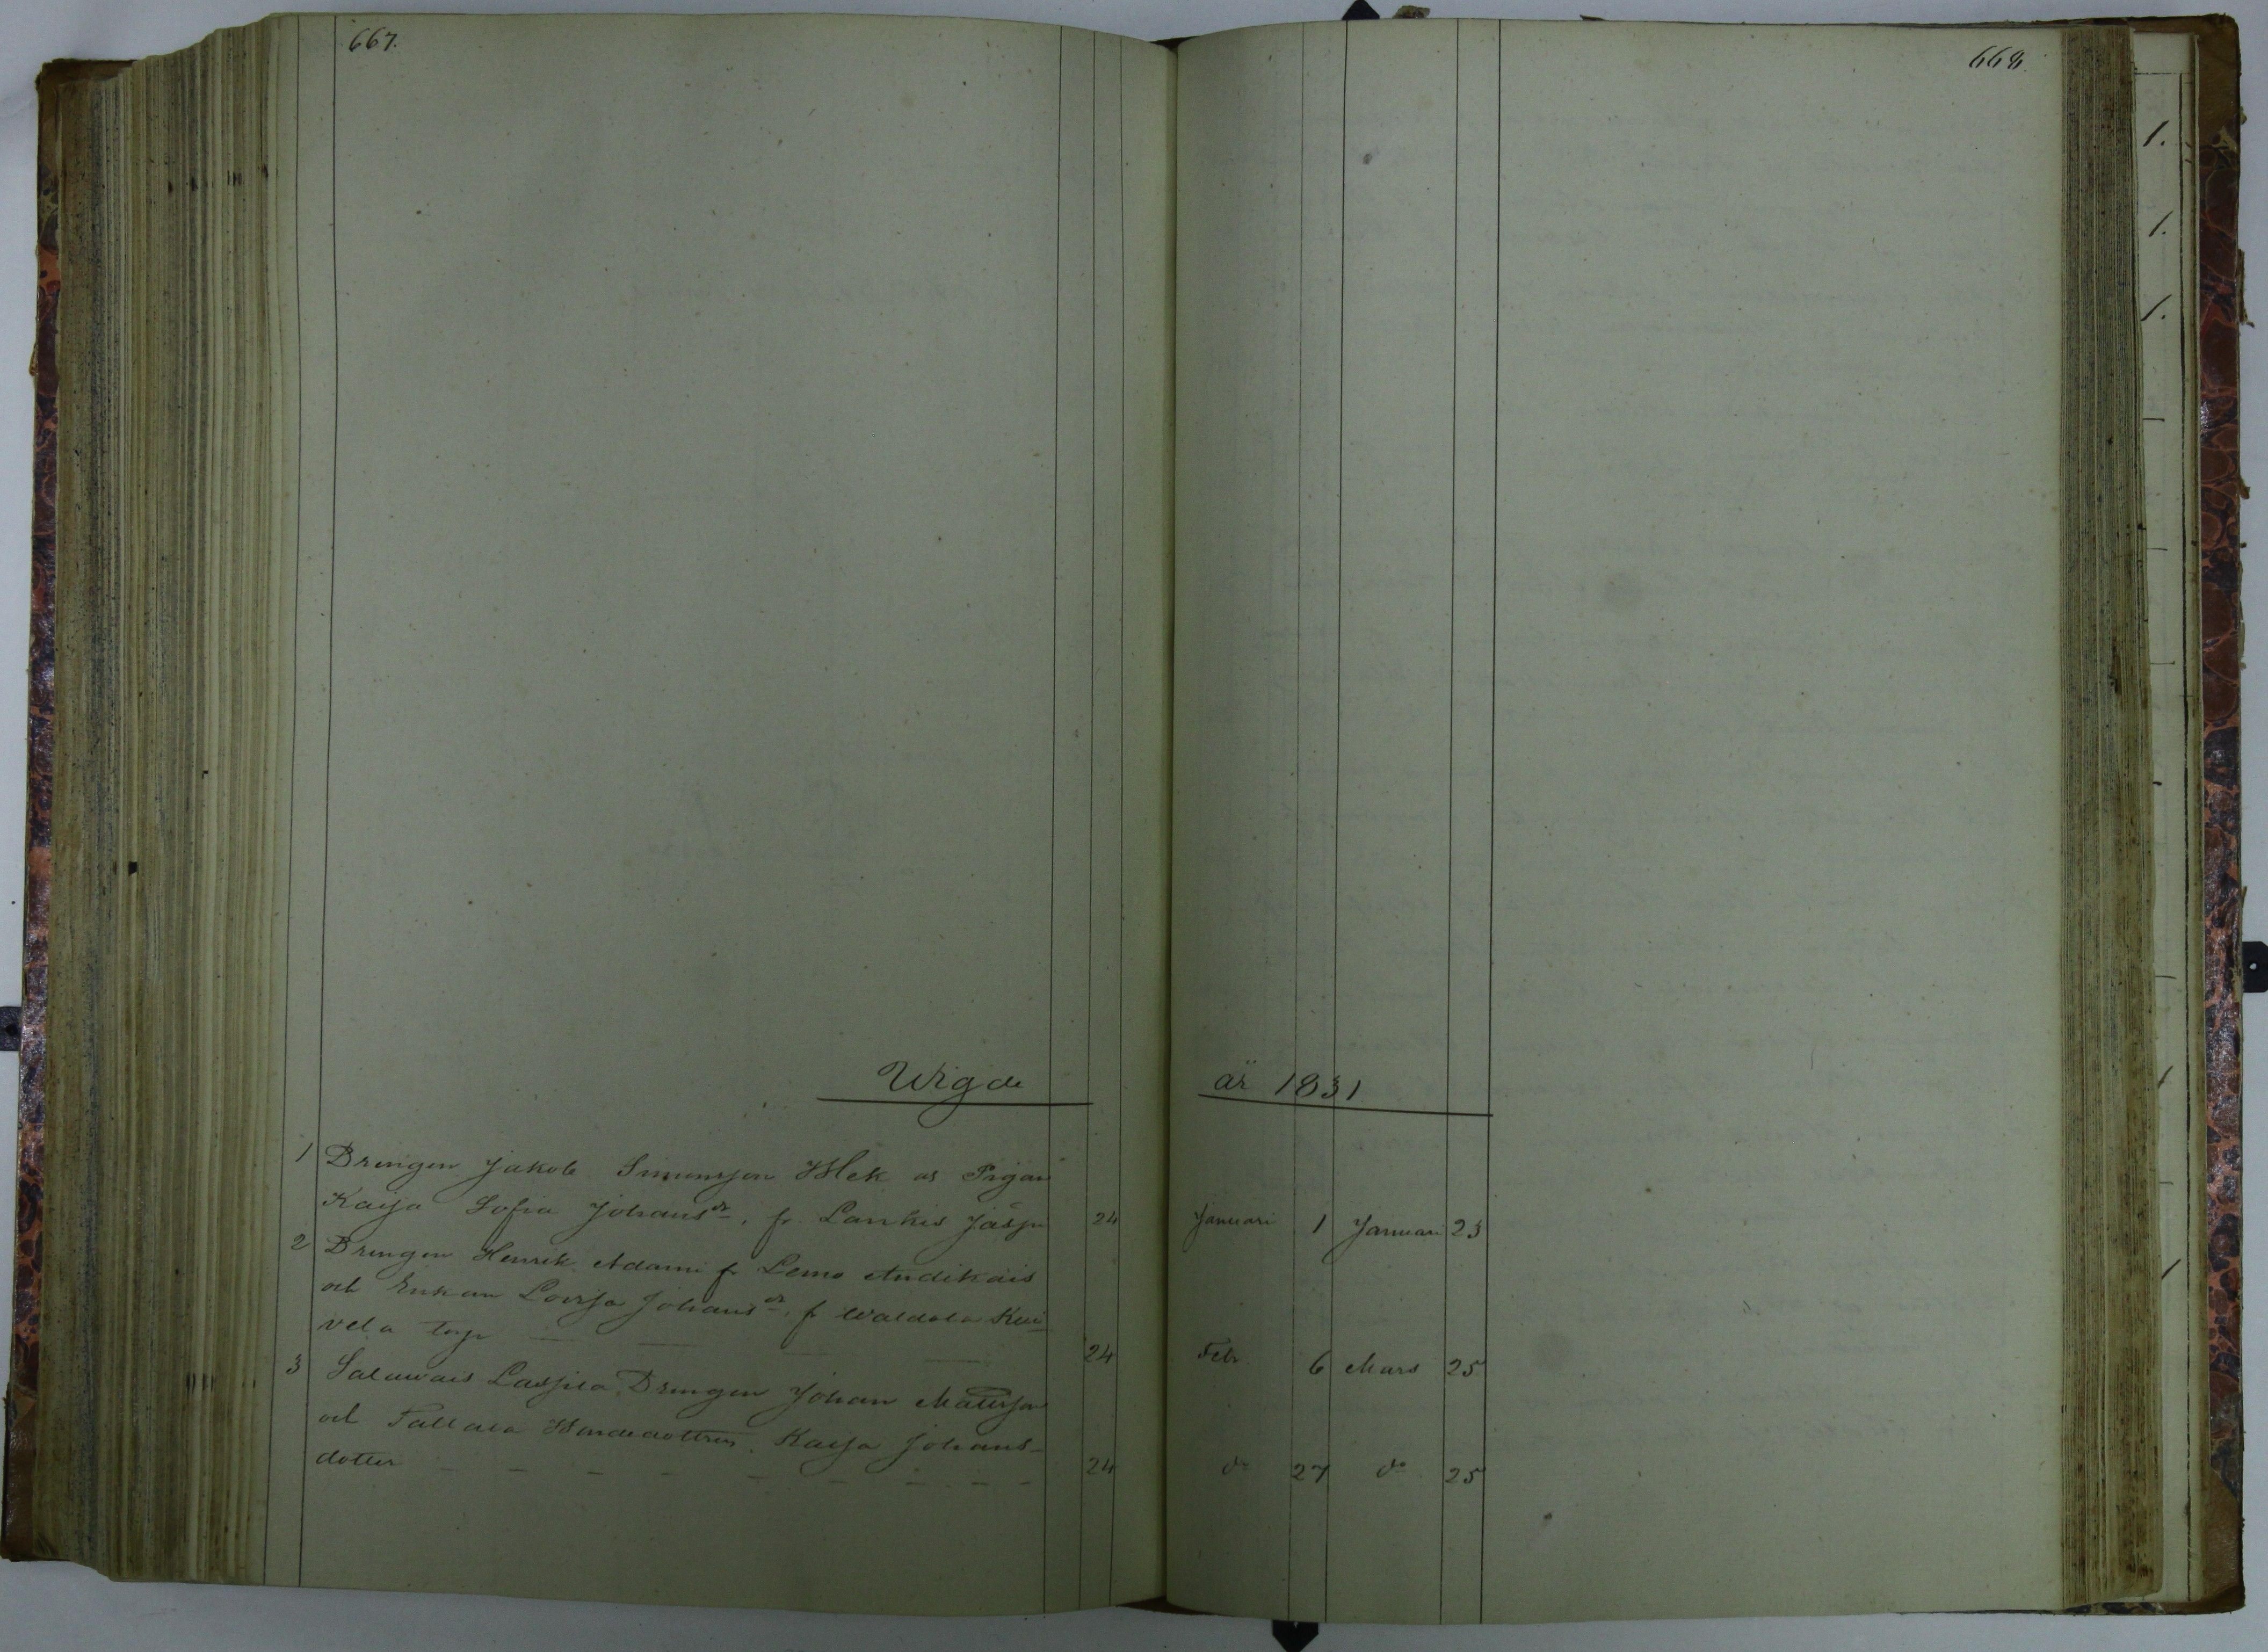 667.
668.
Wigde år 1831
1 Drengen Jakob Simonsson Flek o. Pigan
Kaija Sofia Johansdr, fr. Lankis Jäspi 24 Januari 1 Januari 23
2 Drengen Henrik Adami fr Lemo Andikais
och Enkan Lovisa Johansdr, fr Waldola Kui-
vela torp — — — — 24 Febr 6 Mars 25
3 Salawais Laspila Drengen Johan Mattsson
och Tallala Bondedottren Kaisa Johans-
dotter — — — — — — — — 24 do 27 do 25
1.
1.
1.